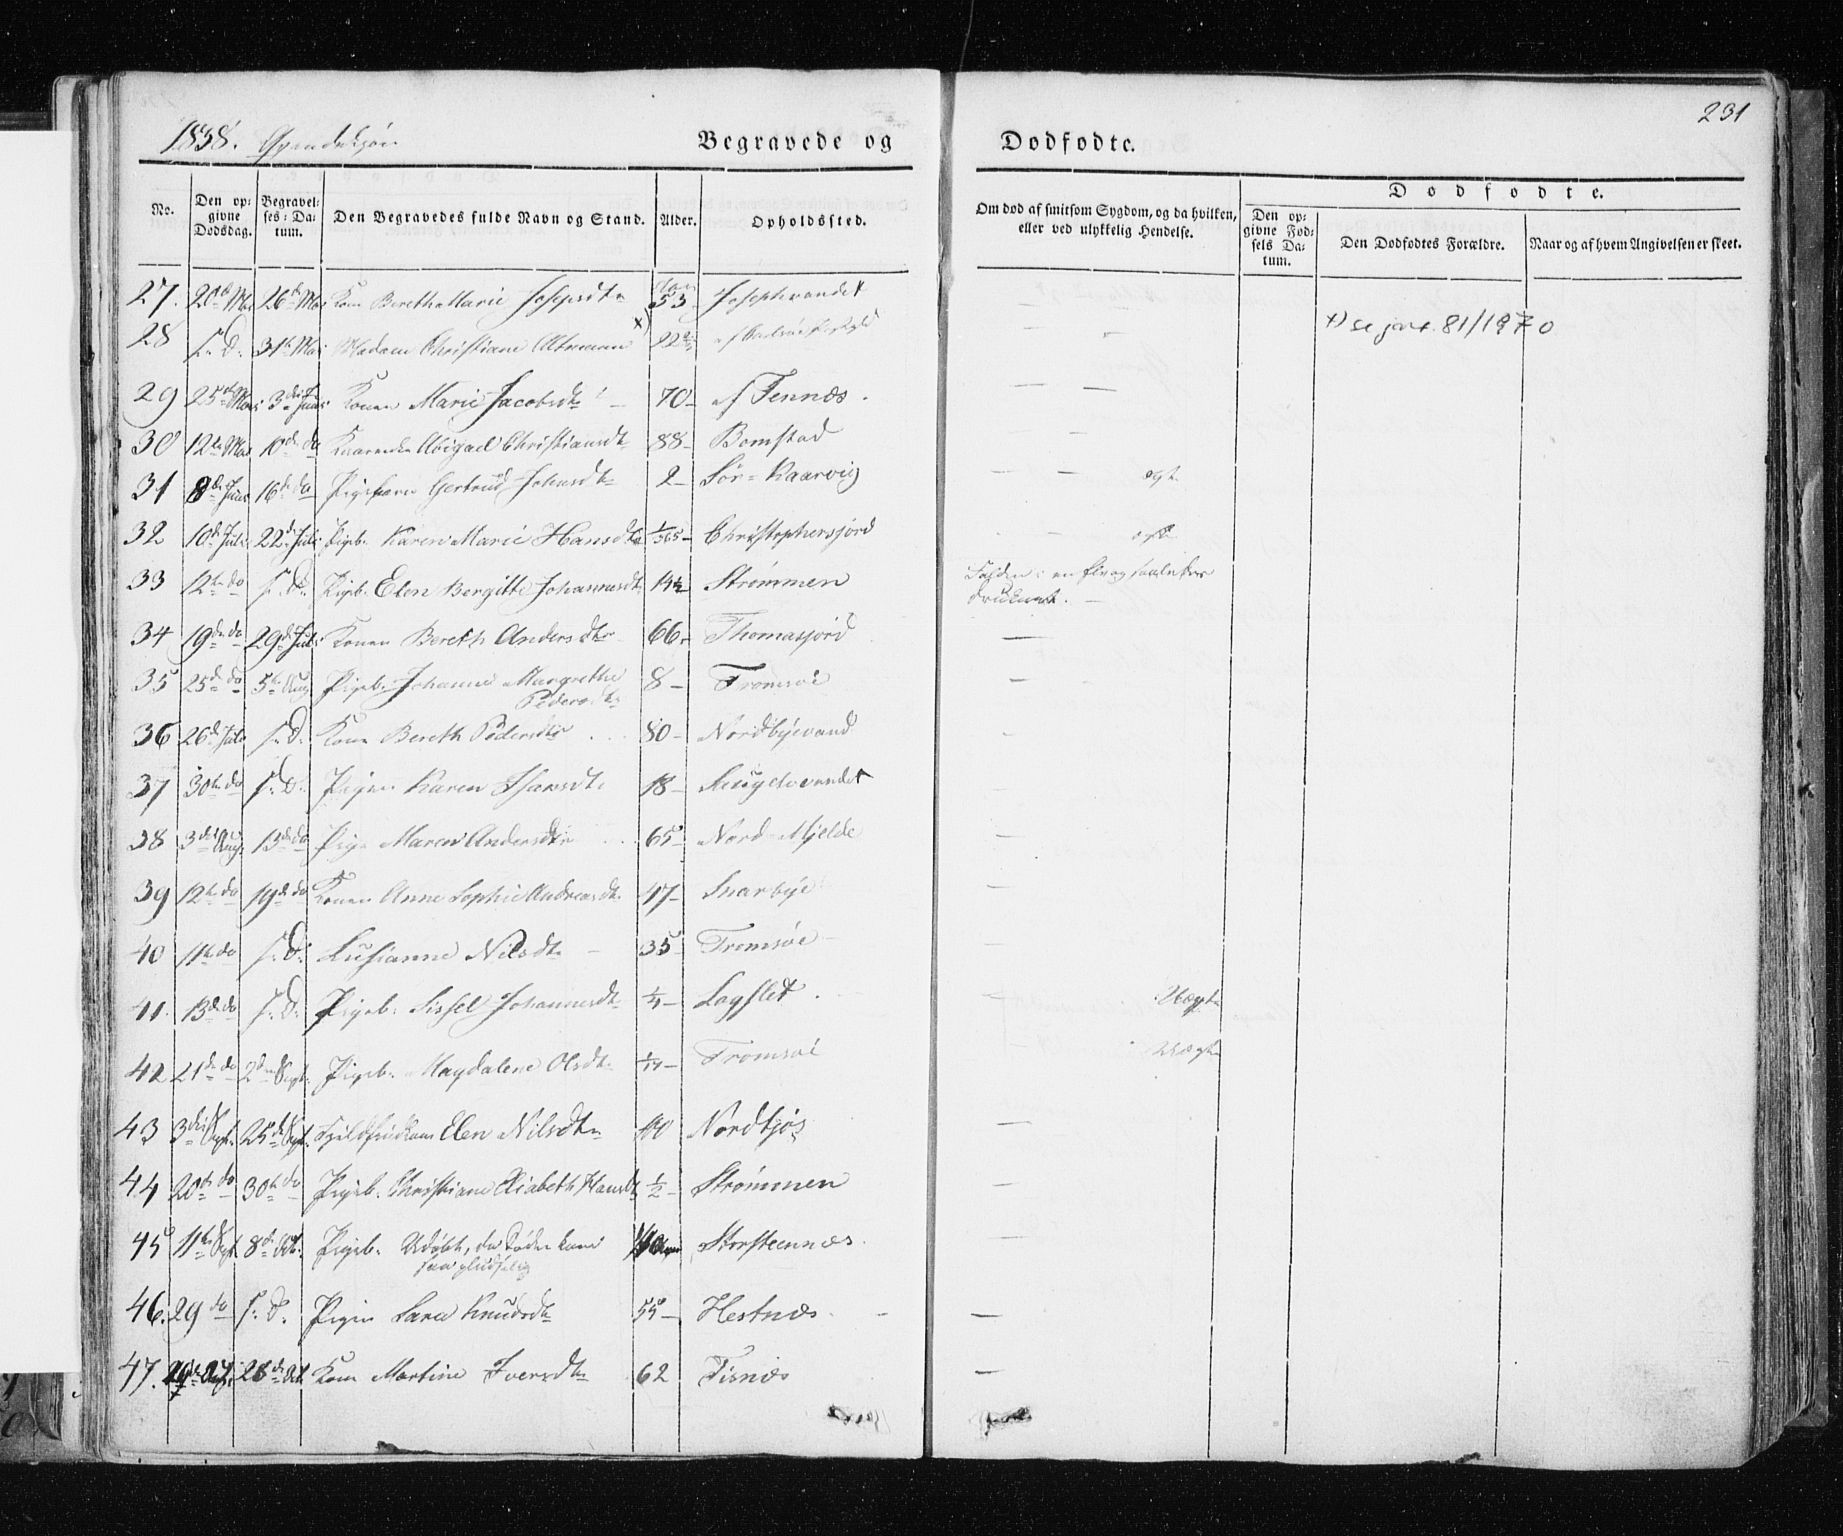 231
1838. Qvindekjøn
Begravede og Dodfodte.
No.
Den opgivne Dodsdag.
Begravelses-Datum.
Den Begravedes fulde Navn og Stand.
Alder.
Opholdssted.
Om dod af smitsom Sygdom, og da hvilken, eller ved ulykkelig Hendelse.
Dodfodte.
Den opgivne Fodsels Datum.
Den Dodfodtes Forældre.
Naar og af hvem Angivelsen er skeet.
27. 20de Mai 26de Mai Kone Bereth Marie Josepsdtr 53 Josephvandet
28 s. D. 31te Mai Madam Christiane Altmann x) 22
x) se jnr. 81/1970
29 25de Mai 3die Juni Konen Marie Jacobsdtr 70 - Tennæs.
30 12te Mai 10de do Abigael Christiansdtr 88 - Bomstad
31 8de Juni 16de do Pigebarn Gertrud Johnsdtr 2 - Sør-Kaarvig ægt.
32 10de Juli 22de Juli Pigeb. Karen Marie Hansdtr 1/365 - Christophersjord ægte
33 12te do s. D. Pigeb. Elen Bergitte Johannesdtr 14 1/2 Strømmen Falden i en Elv og saaledes
druknet. -
34 19de do 29de Juli Konen Bereth Andersdtr 66 - Thomasjord
35 25de do 5te Aug Pigeb. Johanne Margrethe 8 - Tromsøe
Pedersdtr
36 26de Juli s. D. Kone Bereth Pedersdtr 80 - Nordbyevand
37 30te do s. D. Pigen Karen Hansdtr 18 -
38 3die Aug. 13de do Pige Maren Andersdtr 65 - Nord-Mjelde
39 12te do 19de do Konen Anne Sophie Andreasdtr 47 - Snarbye
40 11te do s. D. Lusianne Nilsdtr - 35 - Tromsøe
41. 13de do s. D. Pigeb. Sissel Johannesdtr 1/4 - Lagslet. Uægte
42 21de do 2den Sept. Pigeb. Magdalene Olsdtr Tromsøe Uægte
43 3die Sept. 25de Sept. Elen Nilsdtr 40 Nordkjos
44 20de do 30te do Pigeb. Christiane Elisabeth Hansdtr 1/2 - Strømmen
45 11te Sept. 8de Oct. Pigeb. Udøbt, da Døden kom Storsteennæs.
saa pludselig
46. 29 do s. D. Pigen Sara Knudsdtr 55 - Hestnæs
47. 28de Oct. Kone Martine Iversdtr 62 Tisnæs